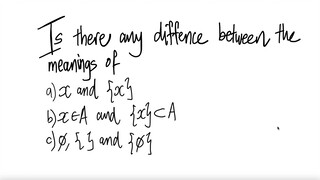 Is there any diffence between the
meanings of
a) x and {x}
b) x∈A and {x}⊂A
c) ϕ, { } and {ϕ}